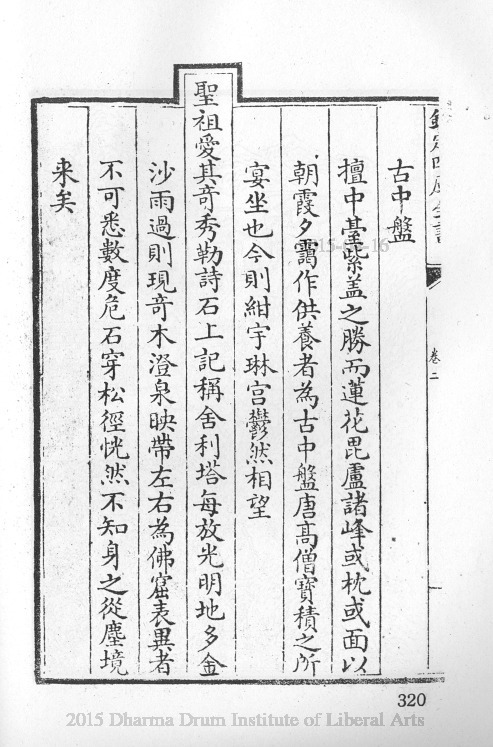 欽定四庫全書
卷二
古中盤
擅中臺紫盖之勝而蓮花毘盧諸峰或枕或面以
朝霞夕靄作供養者為古中盤唐髙僧寶積之所
宴坐也今則紺宇琳宫鬱然相望
聖祖愛其竒秀勒詩石上記稱舍利塔每放光明地多金
沙雨過則現竒木澄泉映帶左右為佛窟表異者
不可悉數度危石穿松徑恍然不知身之從塵境
来矣
320
2015 Dharma Drum Institute of Liberal Arts